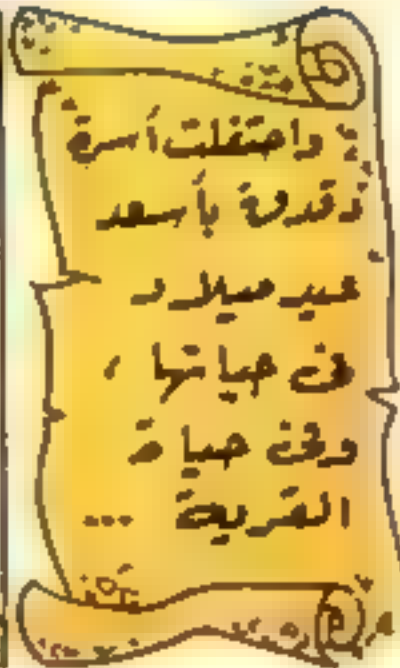 واحتفلت أسرة
دقدقة بأسعد
عيد ميلاد
فى حياتها ،
وفى حياة
القرية ...